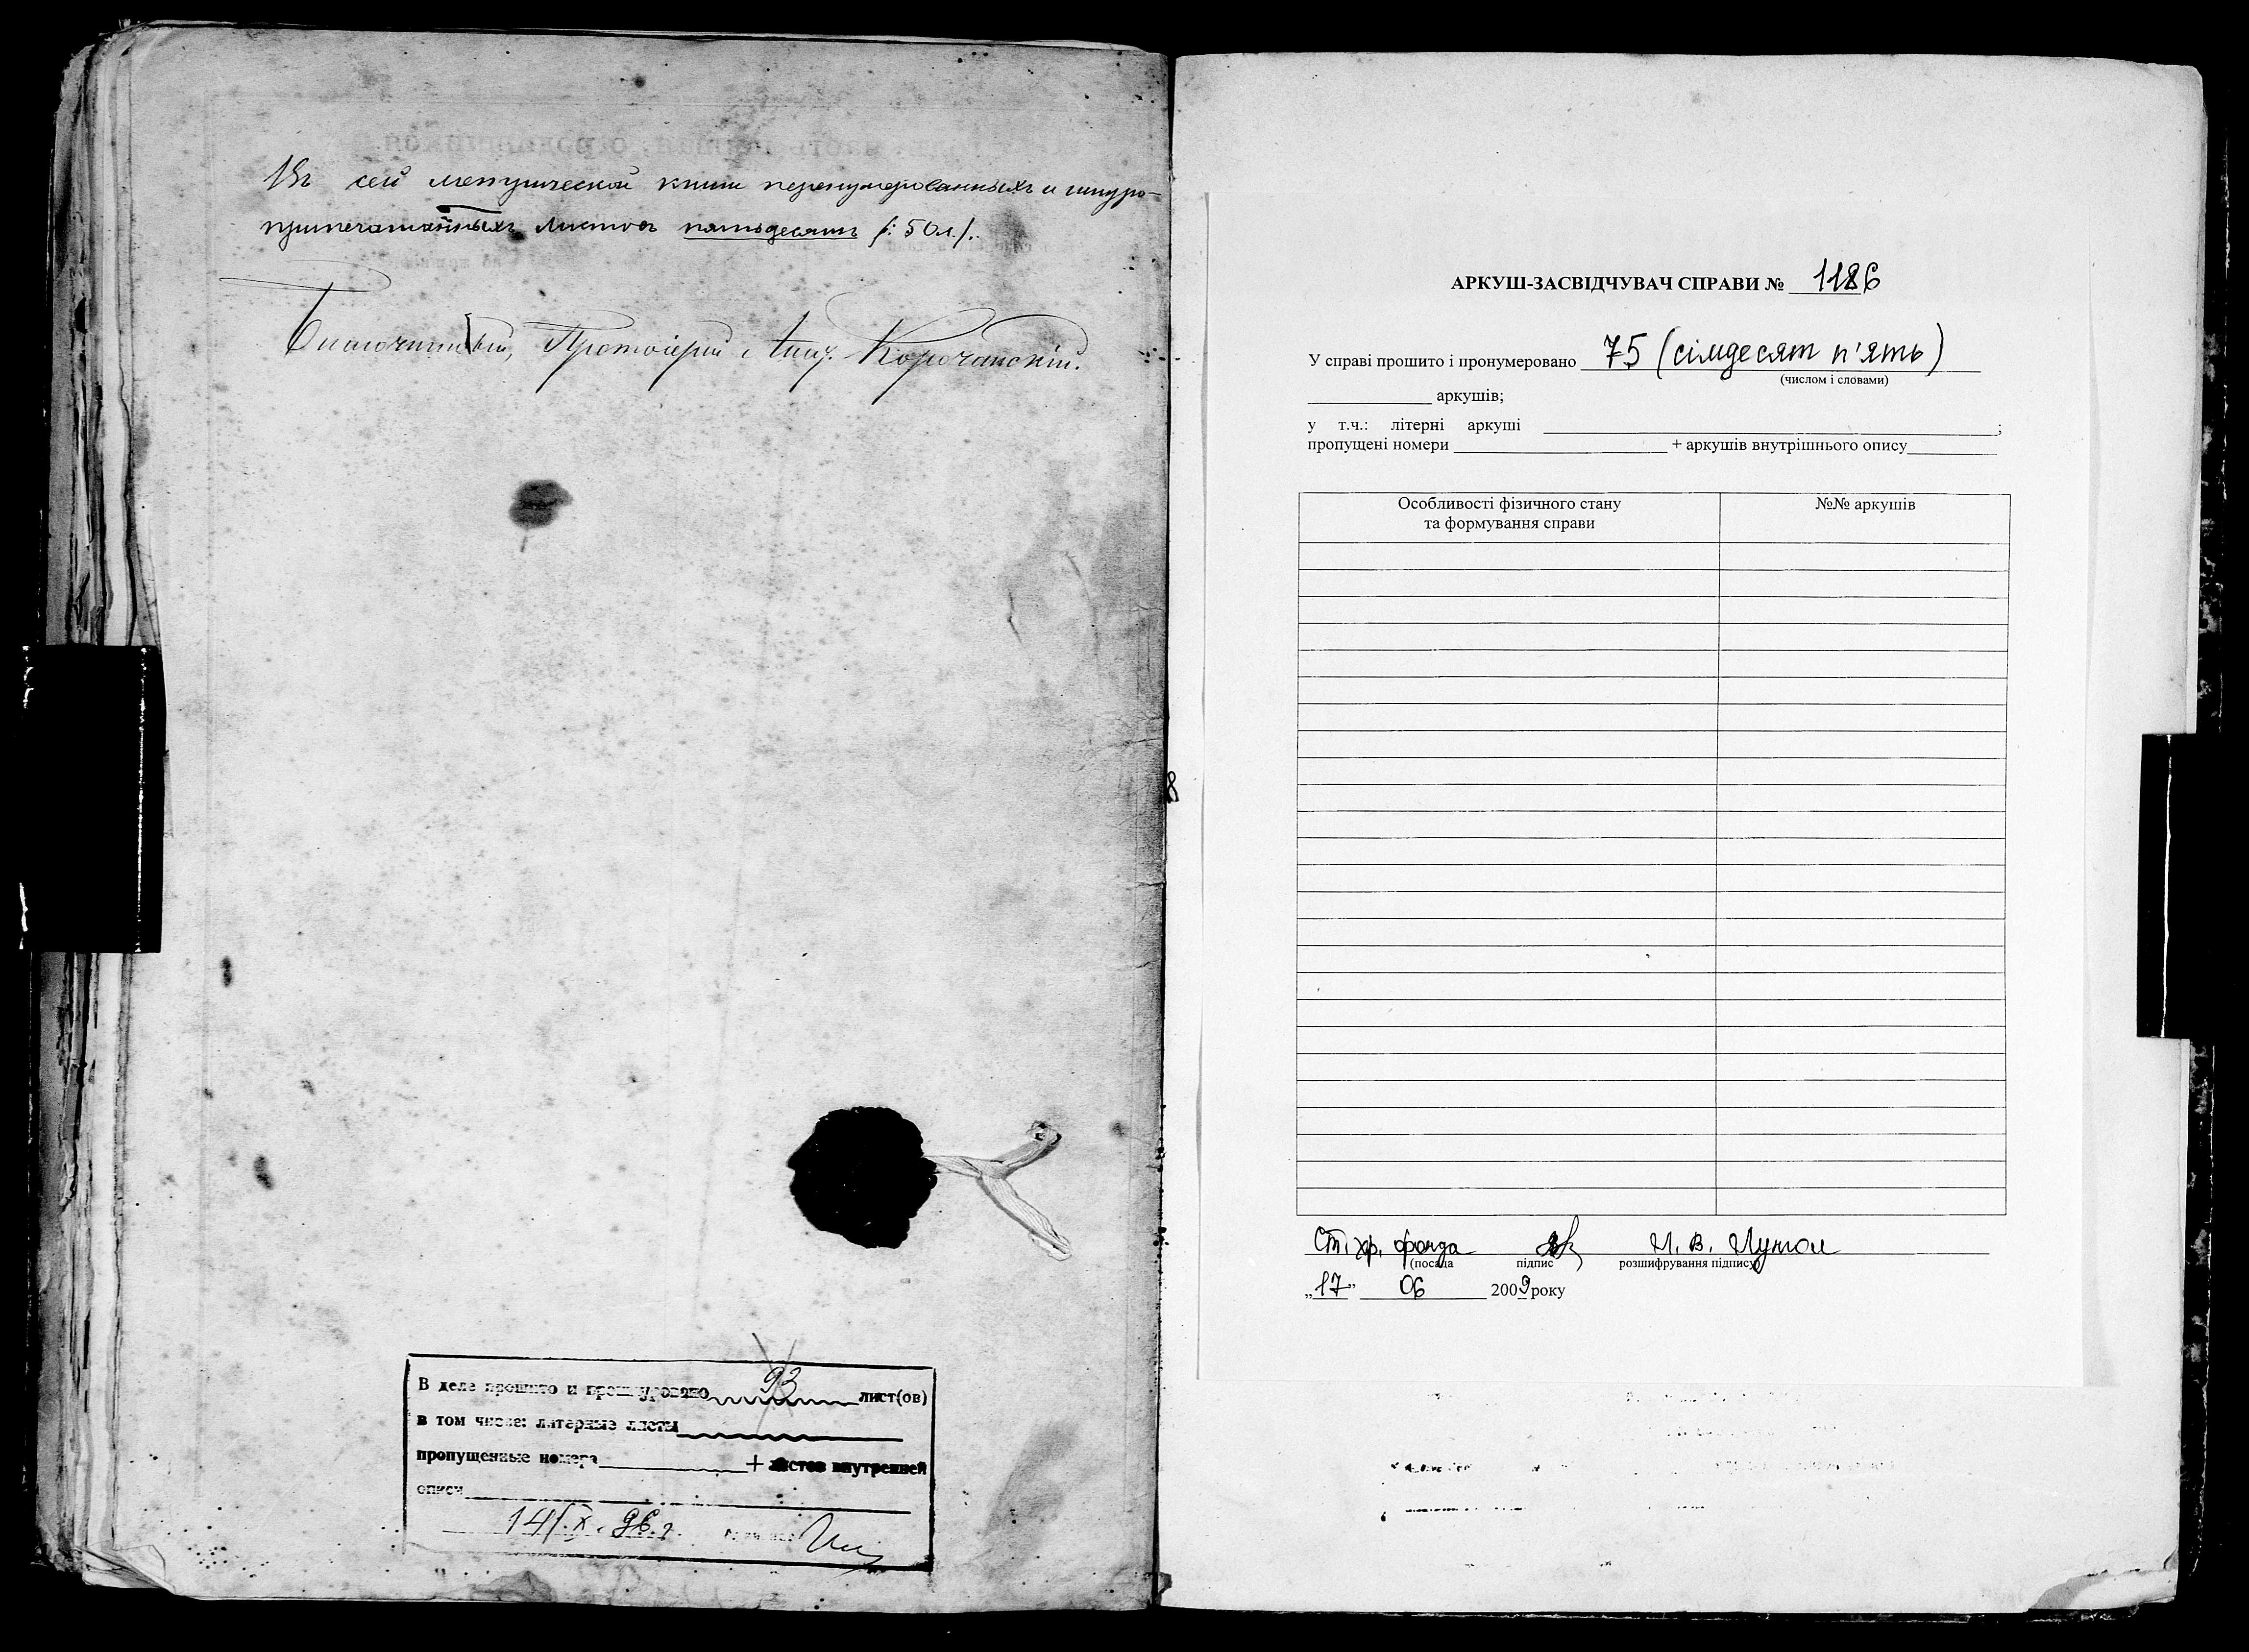 Въ сей метрической книги перенумерованныхъ и шнуро-
припечатанныхъ листовъ пятьдесятъ /: 50 л./.
Благочинный, Протоіерей Корочанскій.
В деле прошито и прошнуровано 93 лист(ов)
в том числе: литерные листы
пропущенные номера + листов внутренней
описи
14/.X. 96.г.
АРКУШ-ЗАСВІДЧУВАЧ СПРАВИ № 1186
У справі прошито і пронумеровано 75 (сімдесят п'ять)
(числом і словами)
аркушів;
у т.ч.: літерні аркуші ;
пропущені номери + аркушів внутрішнього опису
Особливості фізичного стану №№ аркушів
та формування справи
Ст. хр. фонда
(посада підпис розшифрування підпису)
„17” 06 2009 року